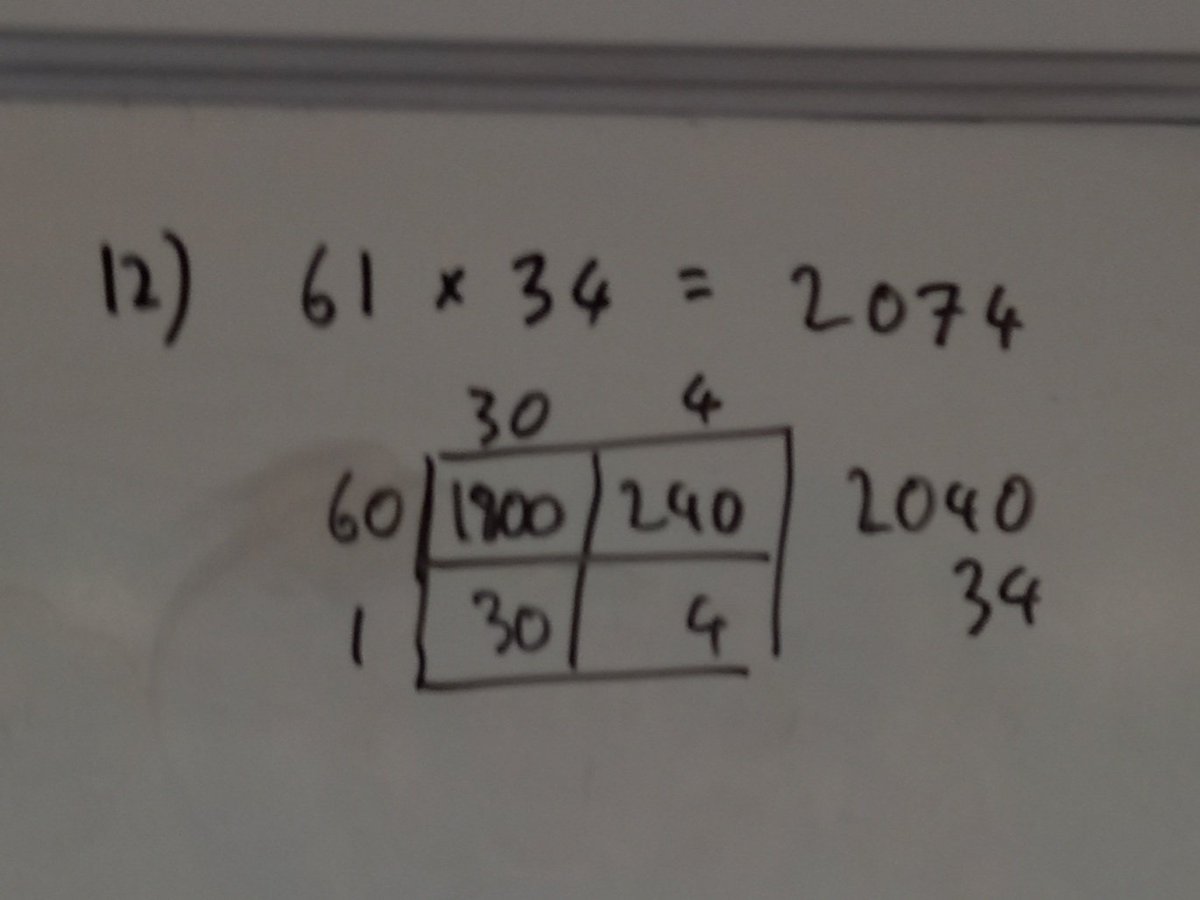 12) 61 × 34 = 2074
30 4
60 1800 240 2040
1 30 4 34